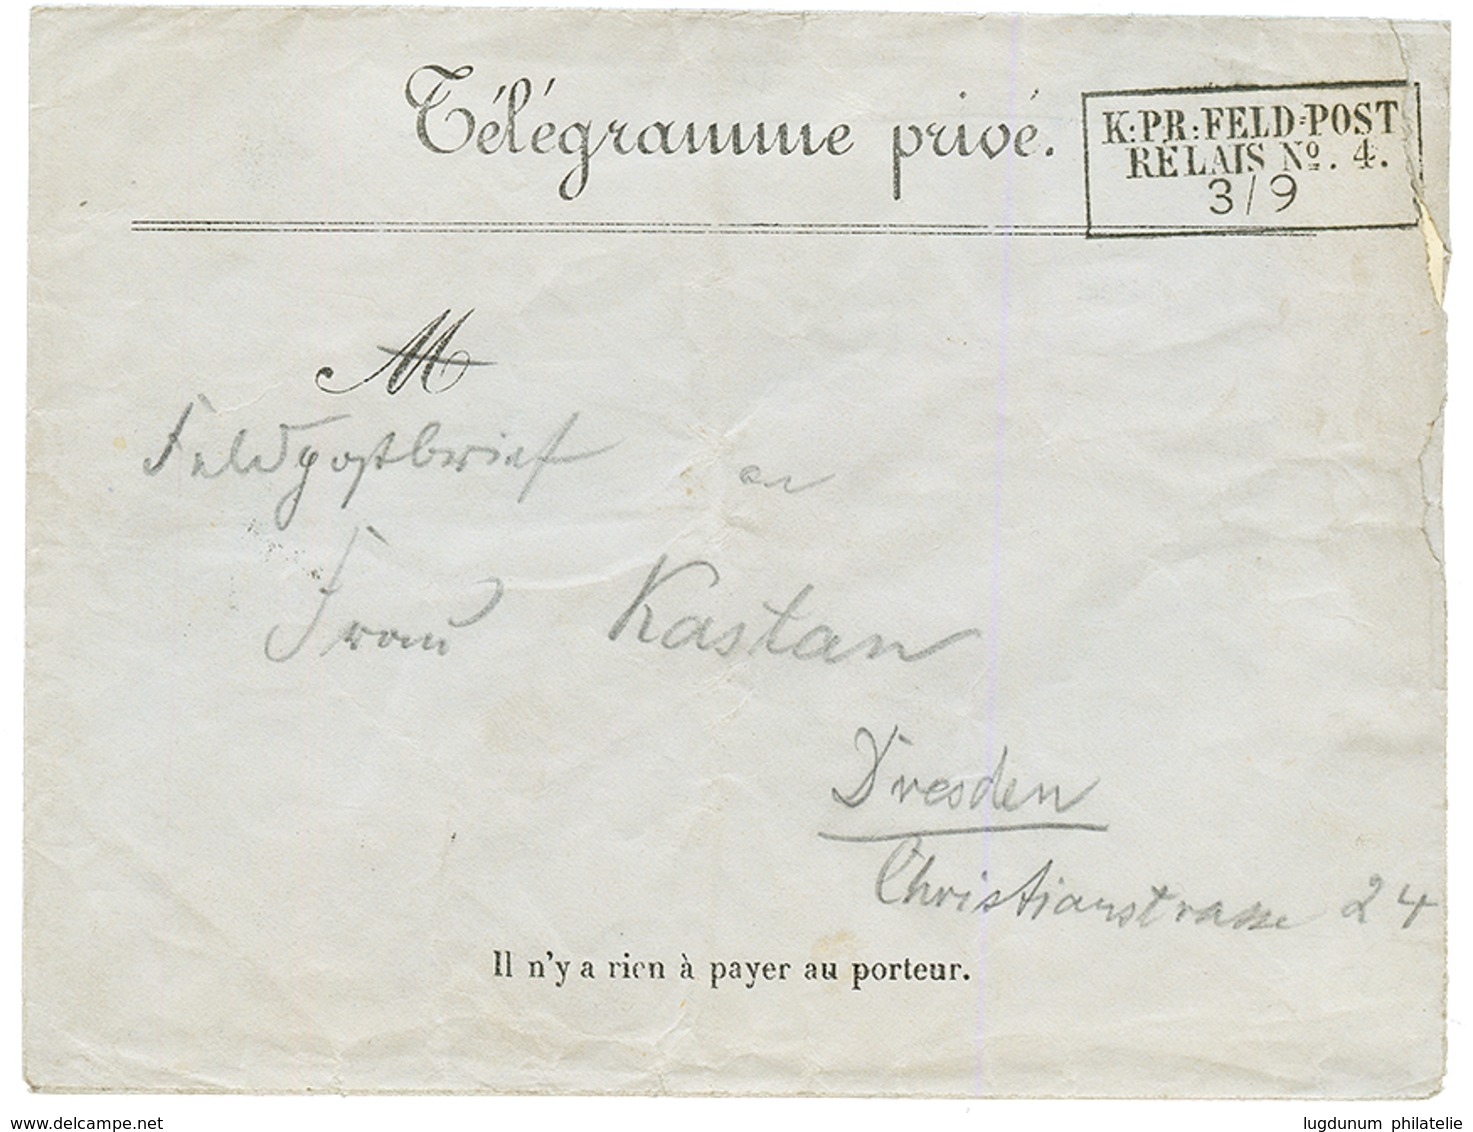 Télégramme privé.
K:PR:FELD=POST
RELAIS Nº. 4.
3/9
M
Feldpostbrief an
Frau Kastan
Dresden
Christianstrasse 24
Il n'y a rien à payer au porteur.
www.delcampe.net
lugdunum philatelie